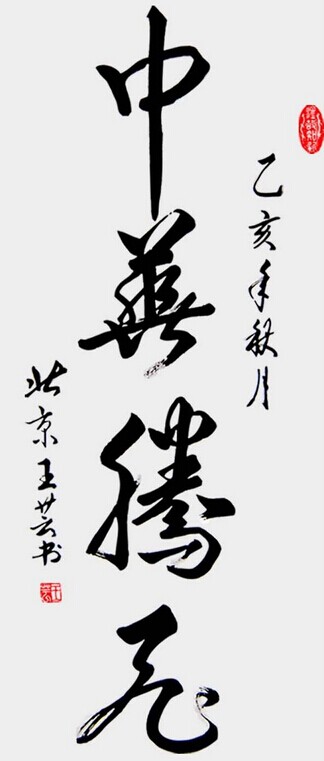 乙亥年秋月
中華騰飛
北京王芸书